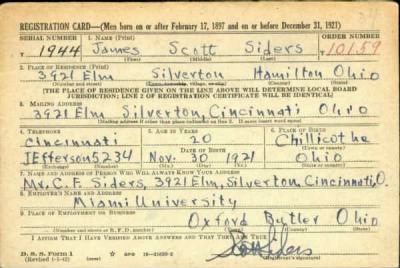 REGISTRATION CARD—(Men born on or after February 17, 1897 and on or before December 31, 1921)
SERIAL NUMBER 1. NAME (Print) ORDER NUMBER
T 1944 James Scott Siders T10159
(First) (Middle) (Last)
2. PLACE OF RESIDENCE (Print)
3921 Elm Silverton Hamilton Ohio
[THE PLACE OF RESIDENCE GIVEN ON THE LINE ABOVE WILL DETERMINE LOCAL BOARD
JURISDICTION; LINE 2 OF REGISTRATION CERTIFICATE WILL BE IDENTICAL]
3. MAILING ADDRESS
3921 Elm Silverton Cincinnati Ohio
[Mailing address if other than place indicated on line 2. If same insert word same]
4. TELEPHONE 5. AGE IN YEARS 6. PLACE OF BIRTH
Cincinnati 20 Chillicothe
DATE OF BIRTH
JEfferson5234 Nov. 30 1921 Ohio
7. NAME AND ADDRESS OF PERSON WHO WILL ALWAYS KNOW YOUR ADDRESS
Mr. C. F. Siders, 3921 Elm, Silverton, Cincinnati, O.
8. EMPLOYER'S NAME AND ADDRESS
Miami University
9. PLACE OF EMPLOYMENT OR BUSINESS
Oxford Butler Ohio
I AFFIRM THAT I HAVE VERIFIED ABOVE ANSWERS AND THAT THEY ARE TRUE.
D. S. S. Form 1
(Revised 1-5-42)